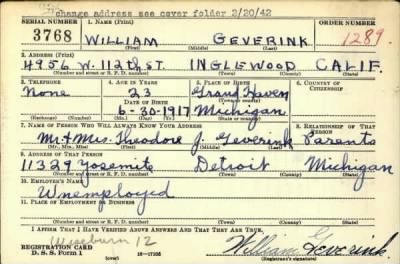 change address see cover folder 2/20/42
SERIAL NUMBER 1. NAME (Print) ORDER NUMBER
3768 WILLIAM GEVERINK 1289
(First) (Middle) (Last)
2. ADDRESS (Print)
4956 W. 112th ST. INGLEWOOD CALIF.
(Number and street or R. F. D. number) (Town) (County) (State)
3. TELEPHONE 4. AGE IN YEARS 5. PLACE OF BIRTH 6. COUNTRY OF CITIZENSHIP
None 23 Grand Haven
DATE OF BIRTH (Town or county)
6-30-1917 Michigan
(Exchange) (No.) (Mo.) (Day) (Yr.) (State or country)
7. NAME OF PERSON WHO WILL ALWAYS KNOW YOUR ADDRESS 8. RELATIONSHIP OF THAT PERSON
Mr & Mrs. Theodore J. Geverink Parents
(Mr., Mrs., Miss) (First) (Middle) (Last)
9. ADDRESS OF THAT PERSON
11329 Yosemite Detroit Michigan
(Number and street or R. F. D. number) (Town) (County) (State)
10. EMPLOYER'S NAME
Unemployed
11. PLACE OF EMPLOYMENT OR BUSINESS
(Number and street or R. F. D. number) (Town) (County) (State)
I AFFIRM THAT I HAVE VERIFIED ABOVE ANSWERS AND THAT THEY ARE TRUE.
Wiseburn 12
REGISTRATION CARD
D. S. S. Form 1 (over) 16-17105 William Geverink
(Registrant's signature)